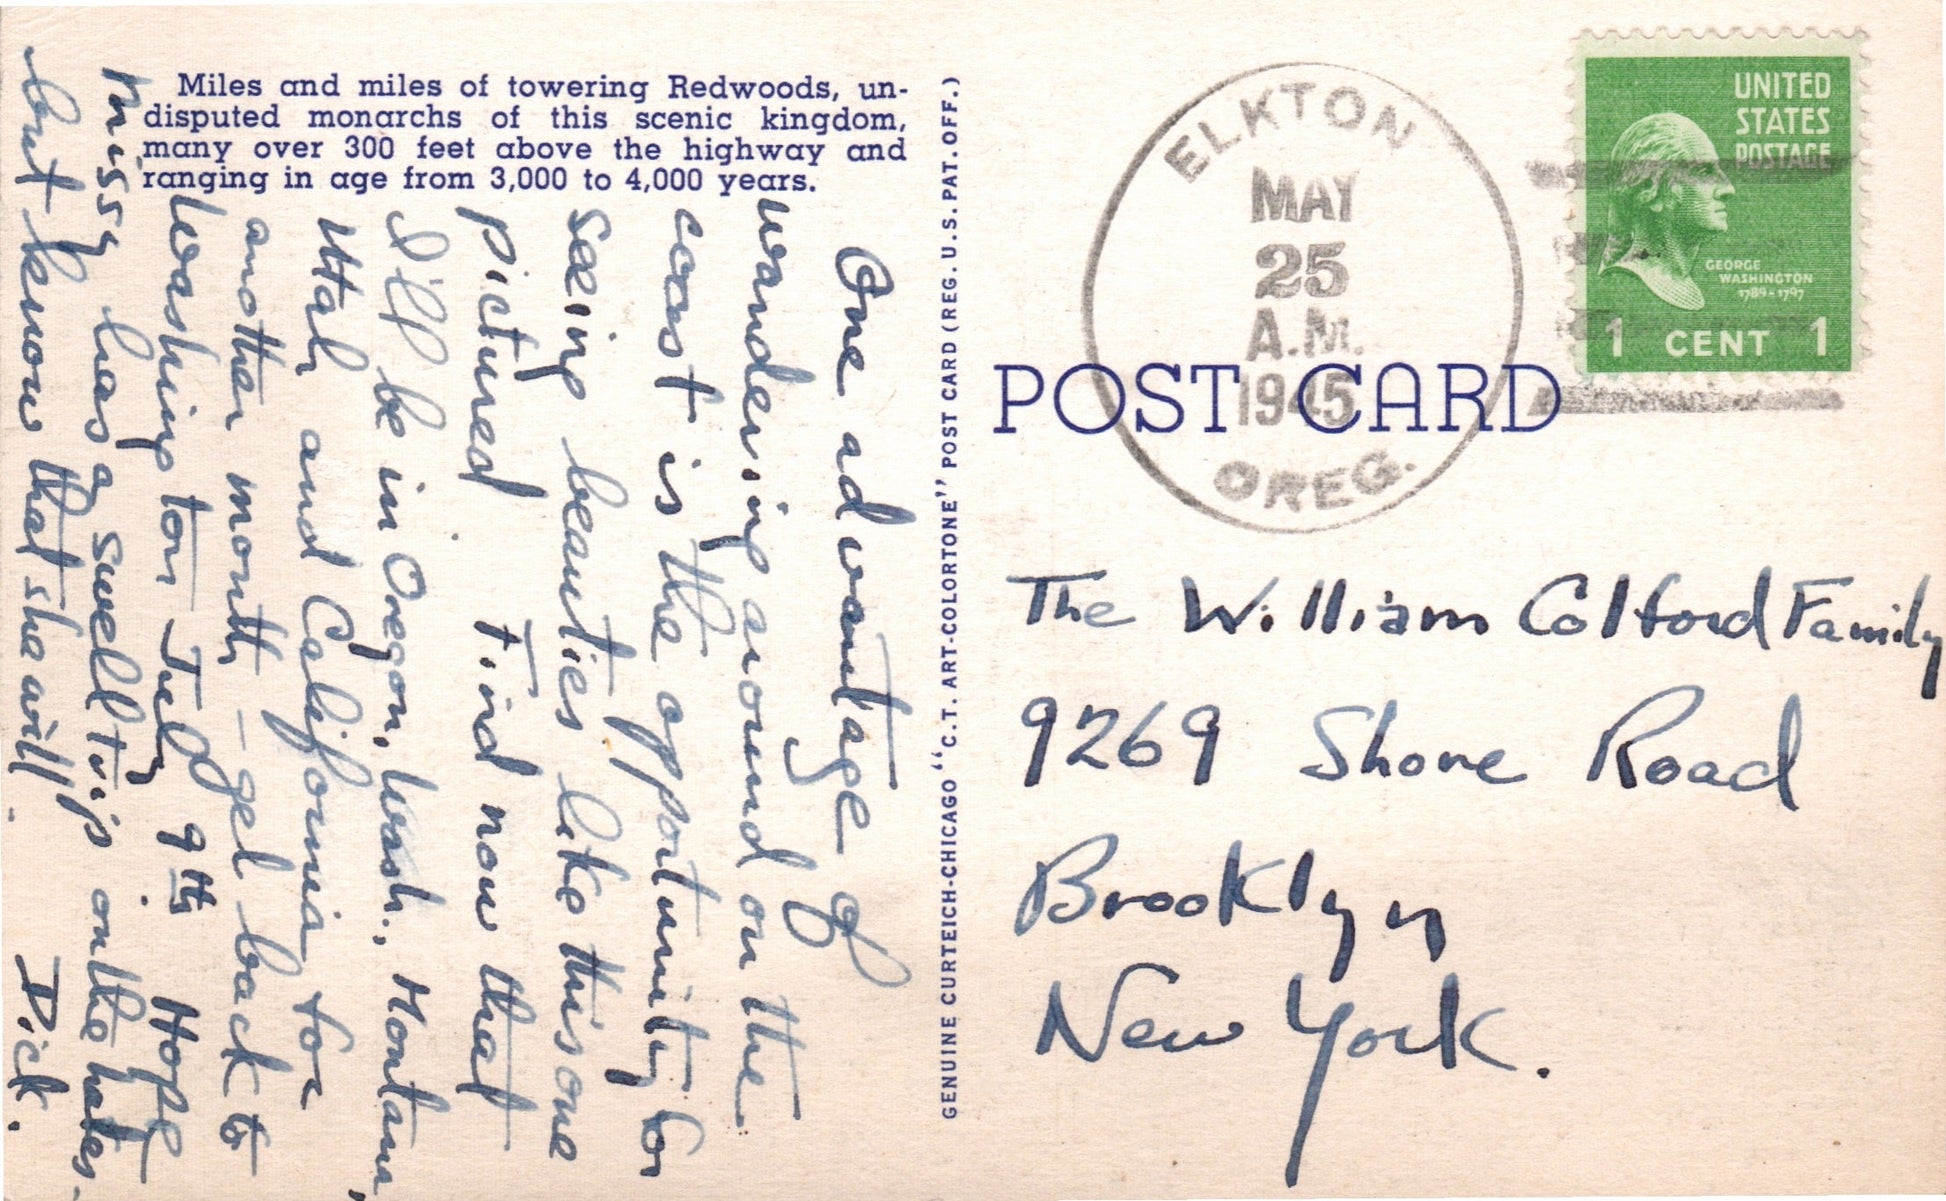 Miles and miles of towering Redwoods, un-
disputed monarchs of this scenic kingdom,
many over 300 feet above the highway and
ranging in age from 3,000 to 4,000 years.
One advantage of
wandering around on the
coast is the opportunity for
seeing beauties like this one
pictured. Find now that
I'll be in Oregon, Wash., Montana,
Utah and California for
another month - get back to
Washington July 9th. Hope
Missy has a swell trip on the
but know that she will.
Dick.
GENUINE CURTEICH-CHICAGO "C.T. ART-COLORTONE" POST CARD (REG. U.S. PAT. OFF.)
POST CARD
ELKTON
MAY
25
A.M.
1945
OREG.
UNITED
STATES
POSTAGE
GEORGE
WASHINGTON
1789-1797
1 CENT 1
The William Colford Family
9269 Shore Road
Brooklyn
New York.